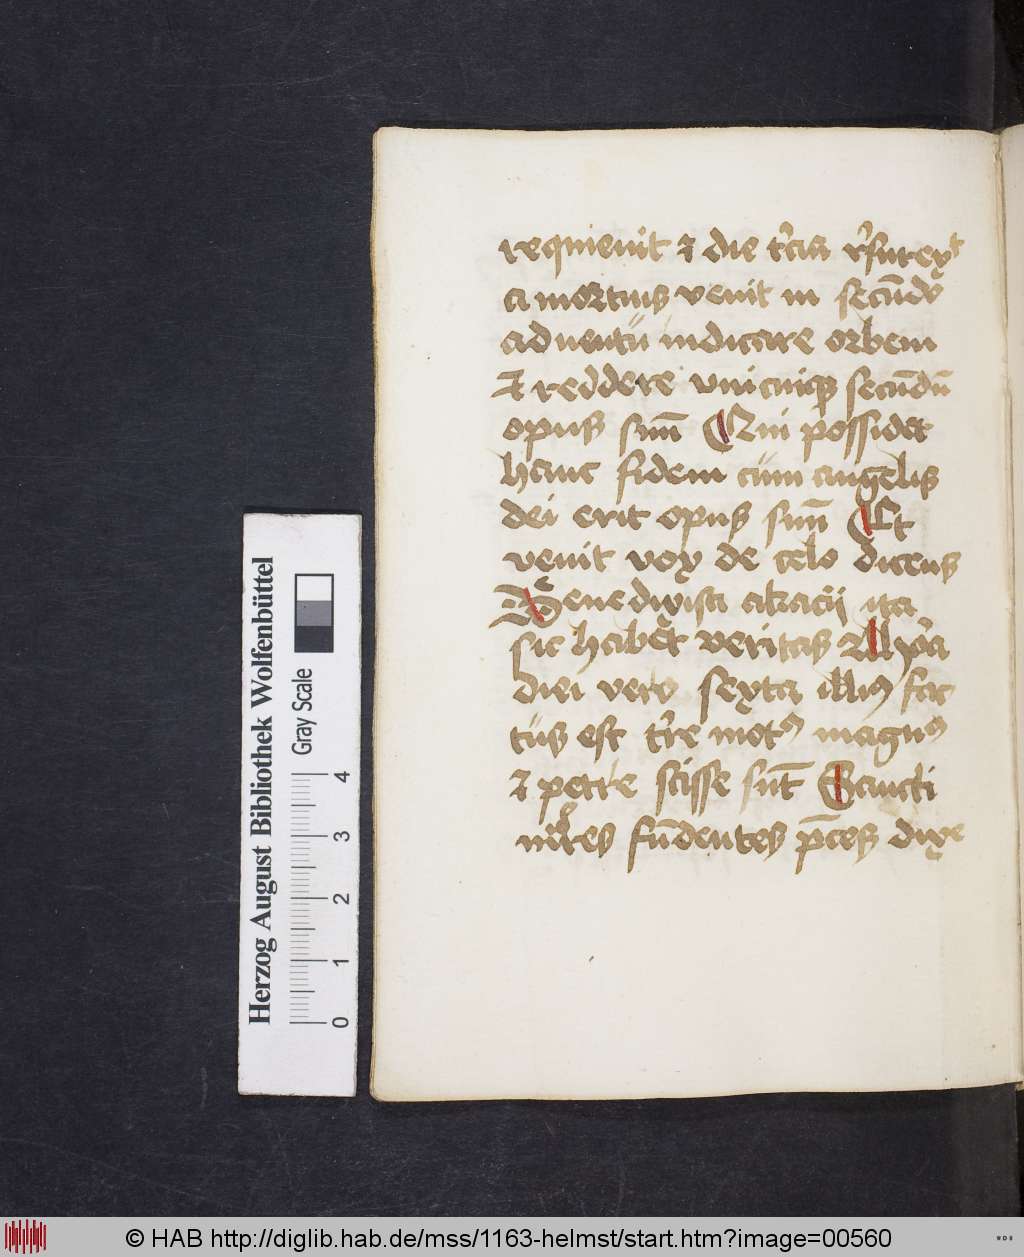 requieuit ⁊ die t̓cia r̓surexͭ
a mortuis venit in secūdo
aduentū iudicare orbem
⁊ reddere vnicuiqꝫ secūdū
opus suū Qui possidet
hanc fidem cūm angelis
dei erit opus suū Et
venit vox de celo dicens
Benedixisti acacii ita
sic habēt veritas
diei vero sexta illiꝰ fac
tus est t̓re motꝰ magnꝰ
⁊ petre scisse sūt Sancti
fūdentes p̄ces dixe
Herzog August Bibliothek Wolfenbüttel
Gray Scale
0 1 2 3 4
© HAB http://diglib.hab.de/mss/1163-helmst/start.htm?image=00560